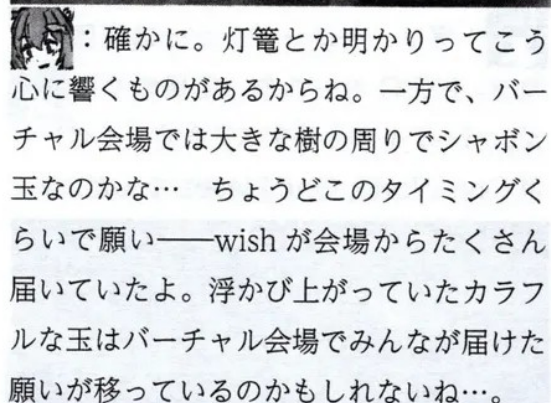 ：確かに。灯篭とか明かりってこう
心に響くものがあるからね。一方で、バー
チャル会場では大きな樹の周りでシャボン
玉なのかな…　ちょうどこのタイミングく
らいで願い――wish が会場からたくさん
届いていたよ。浮かび上がっていたカラフ
ルな玉はバーチャル会場でみんなが届けた
願いが移っているのかもしれないね…。